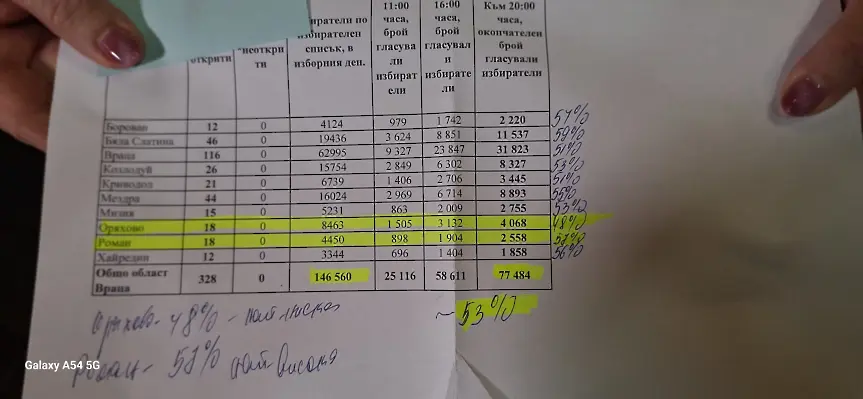 11:00 16:00 Към 20:00
иратели по часа, часа, часа,
избирателен брой брой окончателен
открити неоткри списък, в гласува гласувал брой
ти изборния ден. ли и гласували
избират избирате избиратели
ели ли
Борован 12 0 4124 979 1 742 2 220 54%
Бяла Слатина 46 0 19436 3 624 8 851 11 537 59%
Враца 116 0 62995 9 327 23 847 31 823 51%
Козлодуй 26 0 15754 2 849 6 302 8 327 53%
Криводол 21 0 6739 1 406 2 706 3 445 51%
Мездра 44 0 16024 2 969 6 714 8 893 55%
Мизия 15 0 5231 863 2 009 2 755 53%
Оряхово 18 0 8463 1 505 3 132 4 068 48%
Роман 18 0 4450 898 1 904 2 558
Хайредин 12 0 3344 696 1 404 1 858 56%
Общо област 328 0 146 560 25 116 58 611 77 484
Враца
Оряхово - 48% - най-ниска ~ 53%
Роман - най-висока
Galaxy A54 5G